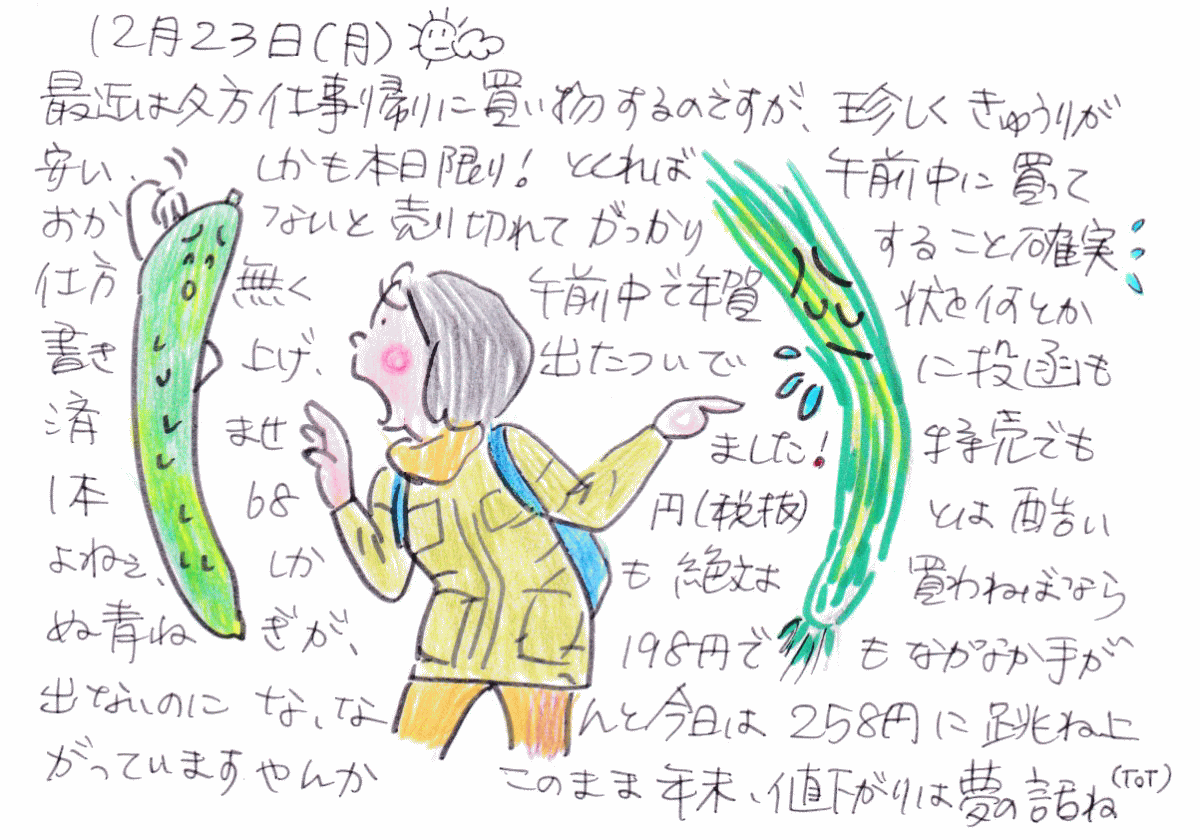 12月23日(月)
最近は夕方仕事帰りに買い物するのですが、珍しくきゅうりが
安い、しかも本日限り!とくれば午前中に買って
おかないと売り切れてがっかりすること確実
仕方無く午前中で年賀状を何とか
書き上げ、出たついでに投函も
済ませました!特売でも
1本68円(税抜)とは酷い
よねぇ、しかも絶対は買わねばなら
ぬ青ねぎが、198円でもなかなか手が
出ないのにな、なんと今日は258円に跳ね上
がっていますやんか このまま年末、値下がりは夢の話ね(ToT)